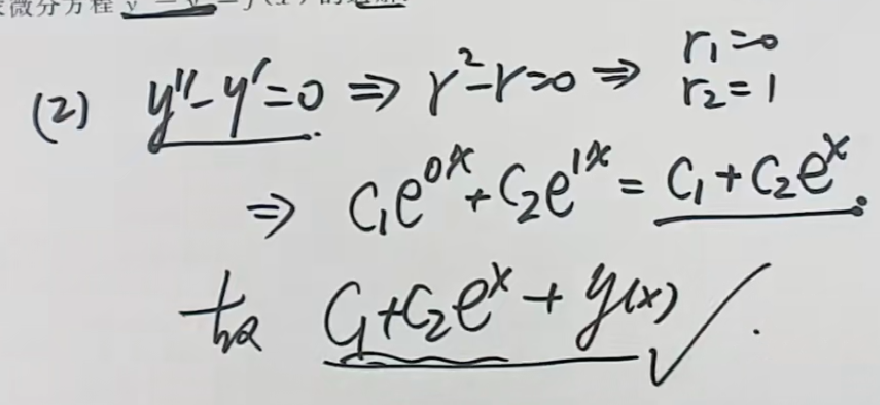 微分方程
(2) y''-y'=0 ⇒ r²-r=0 ⇒ r₁=0
r₂=1
⇒ C₁e^{0x}+C₂e^{1x} = C₁+C₂e^x.
C₁+C₂e^x + y(x) ✓.